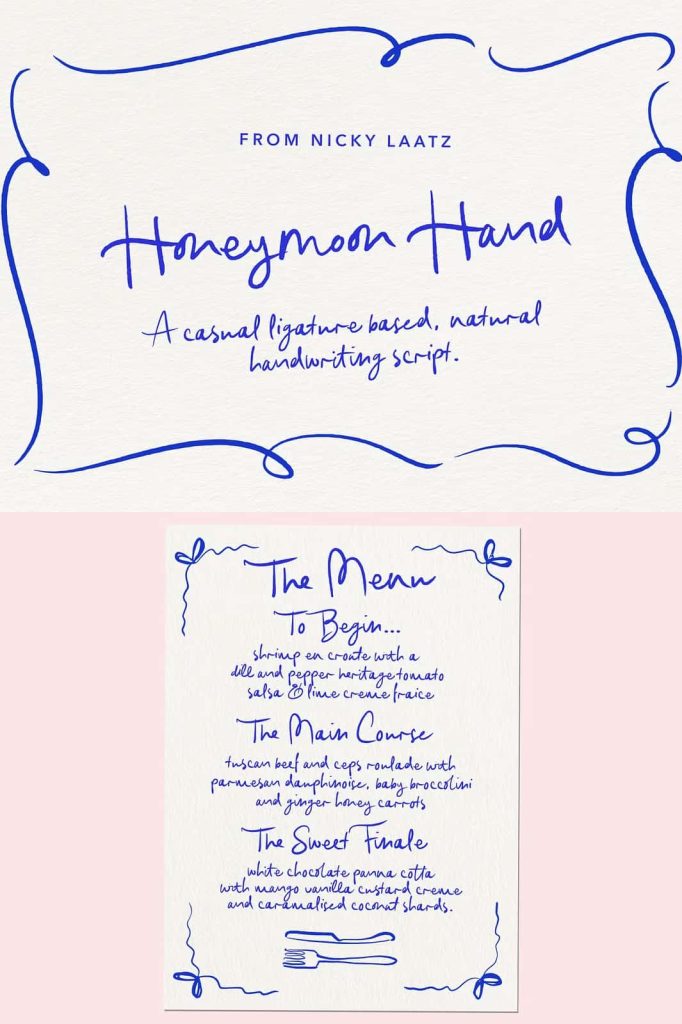 FROM NICKY LAATZ
Honeymoon Hand
A casual ligature based, natural
handwriting script.
The Menu
To Begin...
shrimp en croute with a
dill and pepper heritage tomato
salsa & lime creme fraice
The Main Course
tuscan beef and ceps roulade with
parmesan dauphinoise, baby broccolini
and ginger honey carrots
The Sweet Finale
white chocolate panna cotta
with mango vanilla custard creme
and caramalised coconut shards.